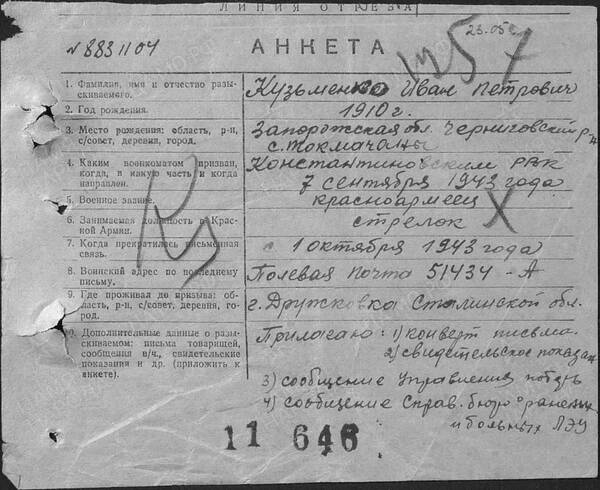 ЛИНИЯ ОТРЕЗА
№ 8831104
АНКЕТА
1257
23.05
1. Фамилия, имя и отчество разы-
скиваемого.
Кузьменко Иван Петрович
2. Год рождения.
1910 г.
3. Место рождения: область, р-н,
с/совет, деревня, город.
Запорожская обл. Черниговский р-н
с. Токмачаны
4. Каким военкоматом призван,
когда, в какую часть и когда
направлен.
Константиновским РВК
7 сентября 1943 года
5. Военное звание.
красноармеец
6. Занимаемая должность в Крас-
ной Армии.
стрелок
7. Когда прекратилась письменная
связь.
с 1 октября 1943 года
8. Воинский адрес по последнему
письму.
Полевая почта 51434-А
9. Где проживал до призыва: об-
ласть, р-н, с/совет, деревня, го-
род.
г. Дружковка Сталинской обл.
10. Дополнительные данные о разы-
скиваемом: письма товарищей,
сообщения в/ч., свидетельские
показания и др. (приложить к
анкете).
Прилагаю: 1) конверт письма
2) свидетельское показан
3) сообщение Управления
4) сообщение Справ. бюро о раненых
и больных
11 646